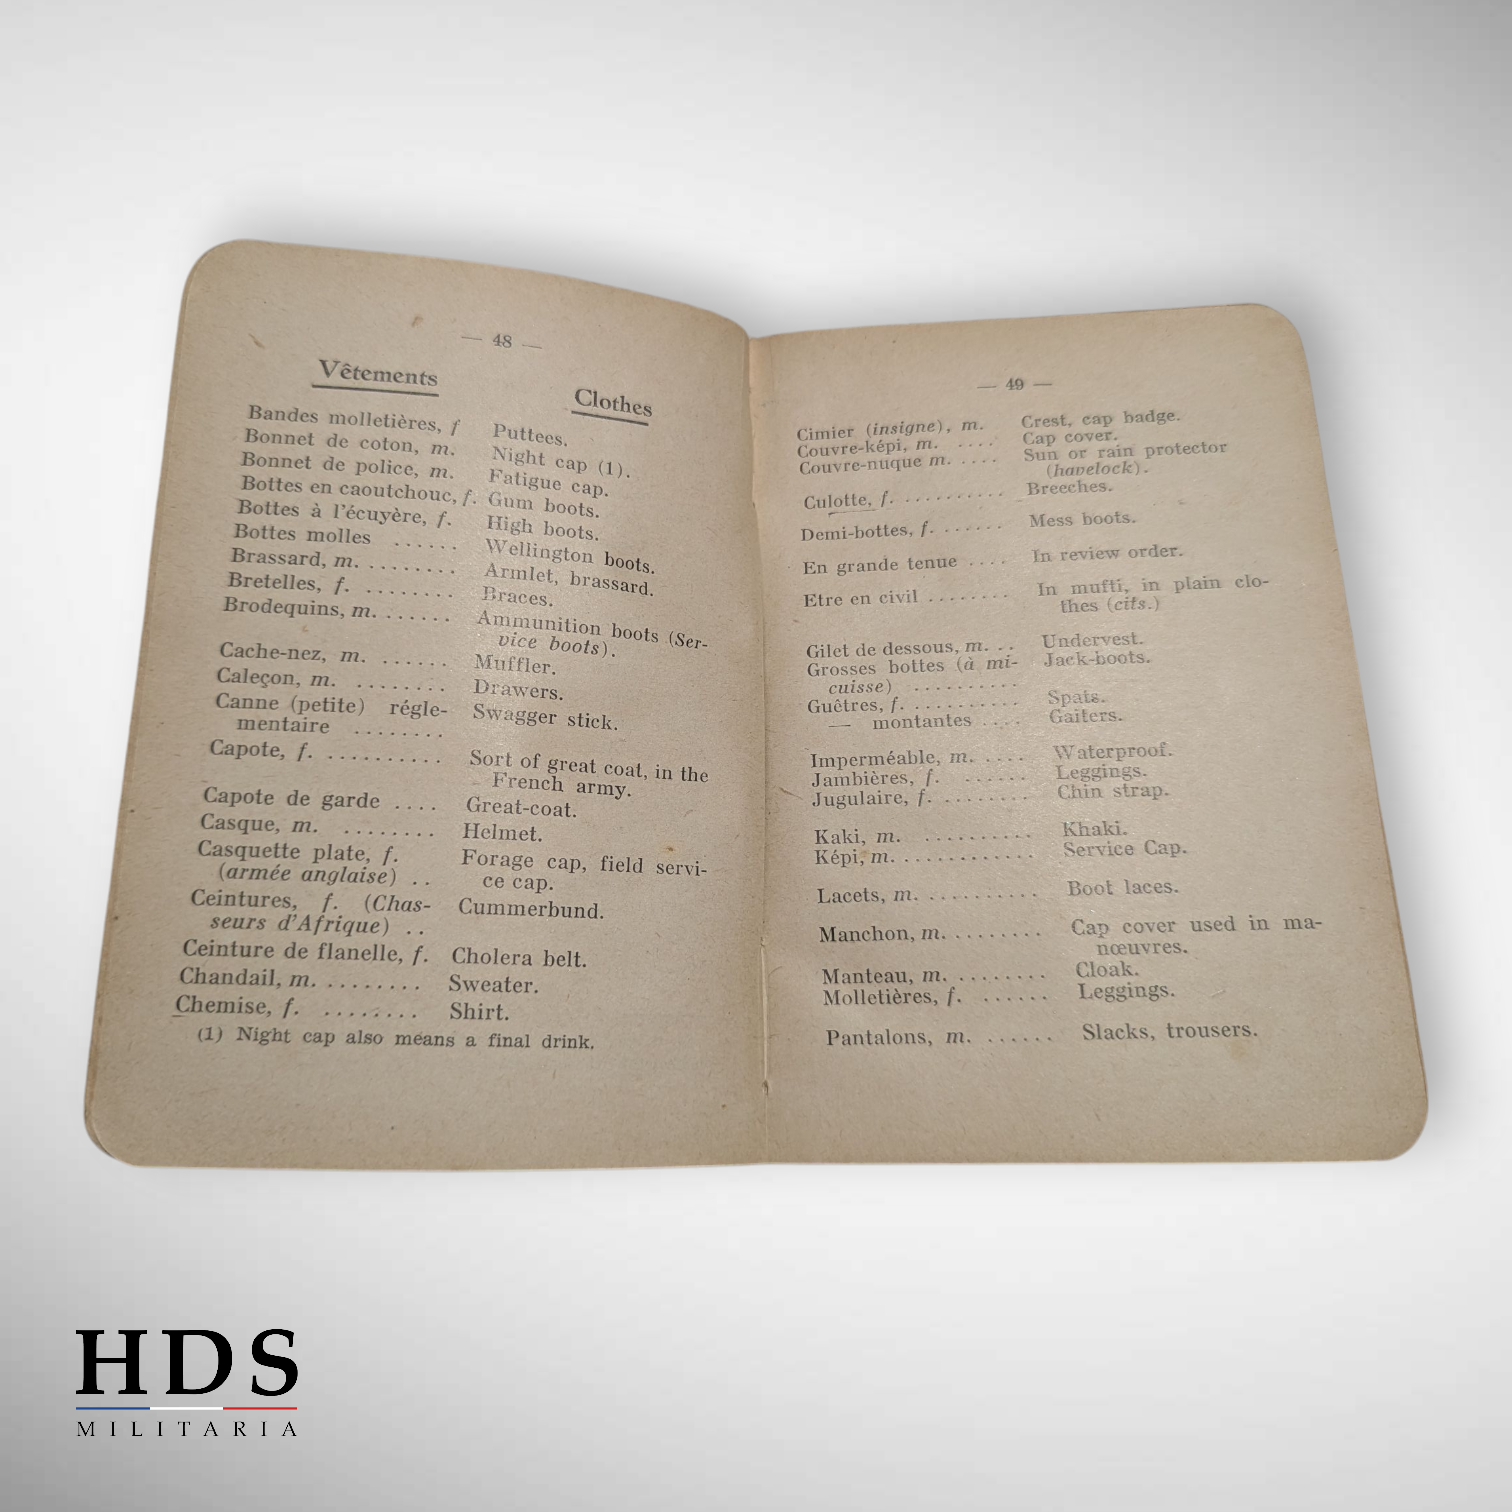 — 48 —
Vêtements Clothes
Bandes molletières, f Puttees.
Bonnet de coton, m. Night cap (1).
Bonnet de police, m. Fatigue cap.
Bottes en caoutchouc, f. Gum boots.
Bottes à l'écuyère, f. High boots.
Bottes molles ...... Wellington boots.
Brassard, m. ........ Armlet, brassard.
Bretelles, f. ........ Braces.
Brodequins, m. ...... Ammunition boots (Ser-
vice boots).
Cache-nez, m. ...... Muffler.
Caleçon, m. ........ Drawers.
Canne (petite) régle- Swagger stick.
mentaire ........
Capote, f. .......... Sort of great coat, in the
French army.
Capote de garde .... Great-coat.
Casque, m. ........ Helmet.
Casquette plate, f. Forage cap, field servi-
(armée anglaise) .. ce cap.
Ceintures, f. (Chas- Cummerbund.
seurs d'Afrique) ..
Ceinture de flanelle, f. Cholera belt.
Chandail, m. ........ Sweater.
Chemise, f. ........ Shirt.
(1) Night cap also means a final drink.
— 49 —
Cimier (insigne), m. Crest, cap badge.
Couvre-képi, m. .... Cap cover.
Couvre-nuque m. .... Sun or rain protector
(havelock).
Culotte, f. .......... Breeches.
Demi-bottes, f. ...... Mess boots.
En grande tenue .... In review order.
Etre en civil ........ In mufti, in plain clo-
thes (cits.)
Gilet de dessous, m. .. Undervest.
Grosses bottes (à mi- Jack-boots.
cuisse) ..........
Guêtres, f. .......... Spats.
— montantes .... Gaiters.
Imperméable, m. .... Waterproof.
Jambières, f. ...... Leggings.
Jugulaire, f. ........ Chin strap.
Kaki, m. .......... Khaki.
Képi, m. ............ Service Cap.
Lacets, m. .......... Boot laces.
Manchon, m. ........ Cap cover used in ma-
nœuvres.
Manteau, m. ........ Cloak.
Molletières, f. ...... Leggings.
Pantalons, m. ...... Slacks, trousers.
HDS
MILITARIA